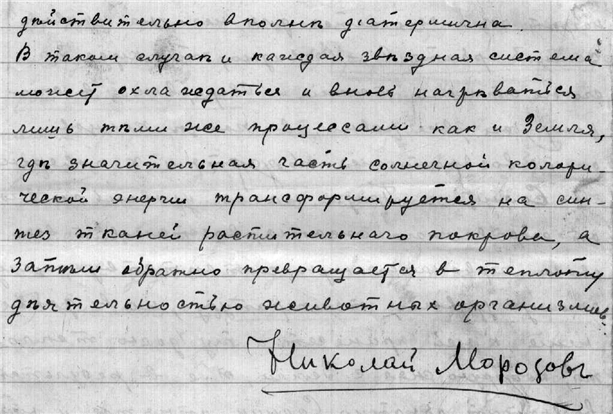 дѣйствительно вполнѣ діатермична.
В таком случаѣ и каждая звѣздная система
может охлаждаться и вновь нагрѣваться
лишь тѣми же процессами как и Земля,
гдѣ значительная часть солнечной калори-
ческой энергии трансформируется на син-
тез тканей растительнаго покрова, а
затѣм обратно превращается в теплоту
дѣятельностью животных организмов.
Николай Морозовъ